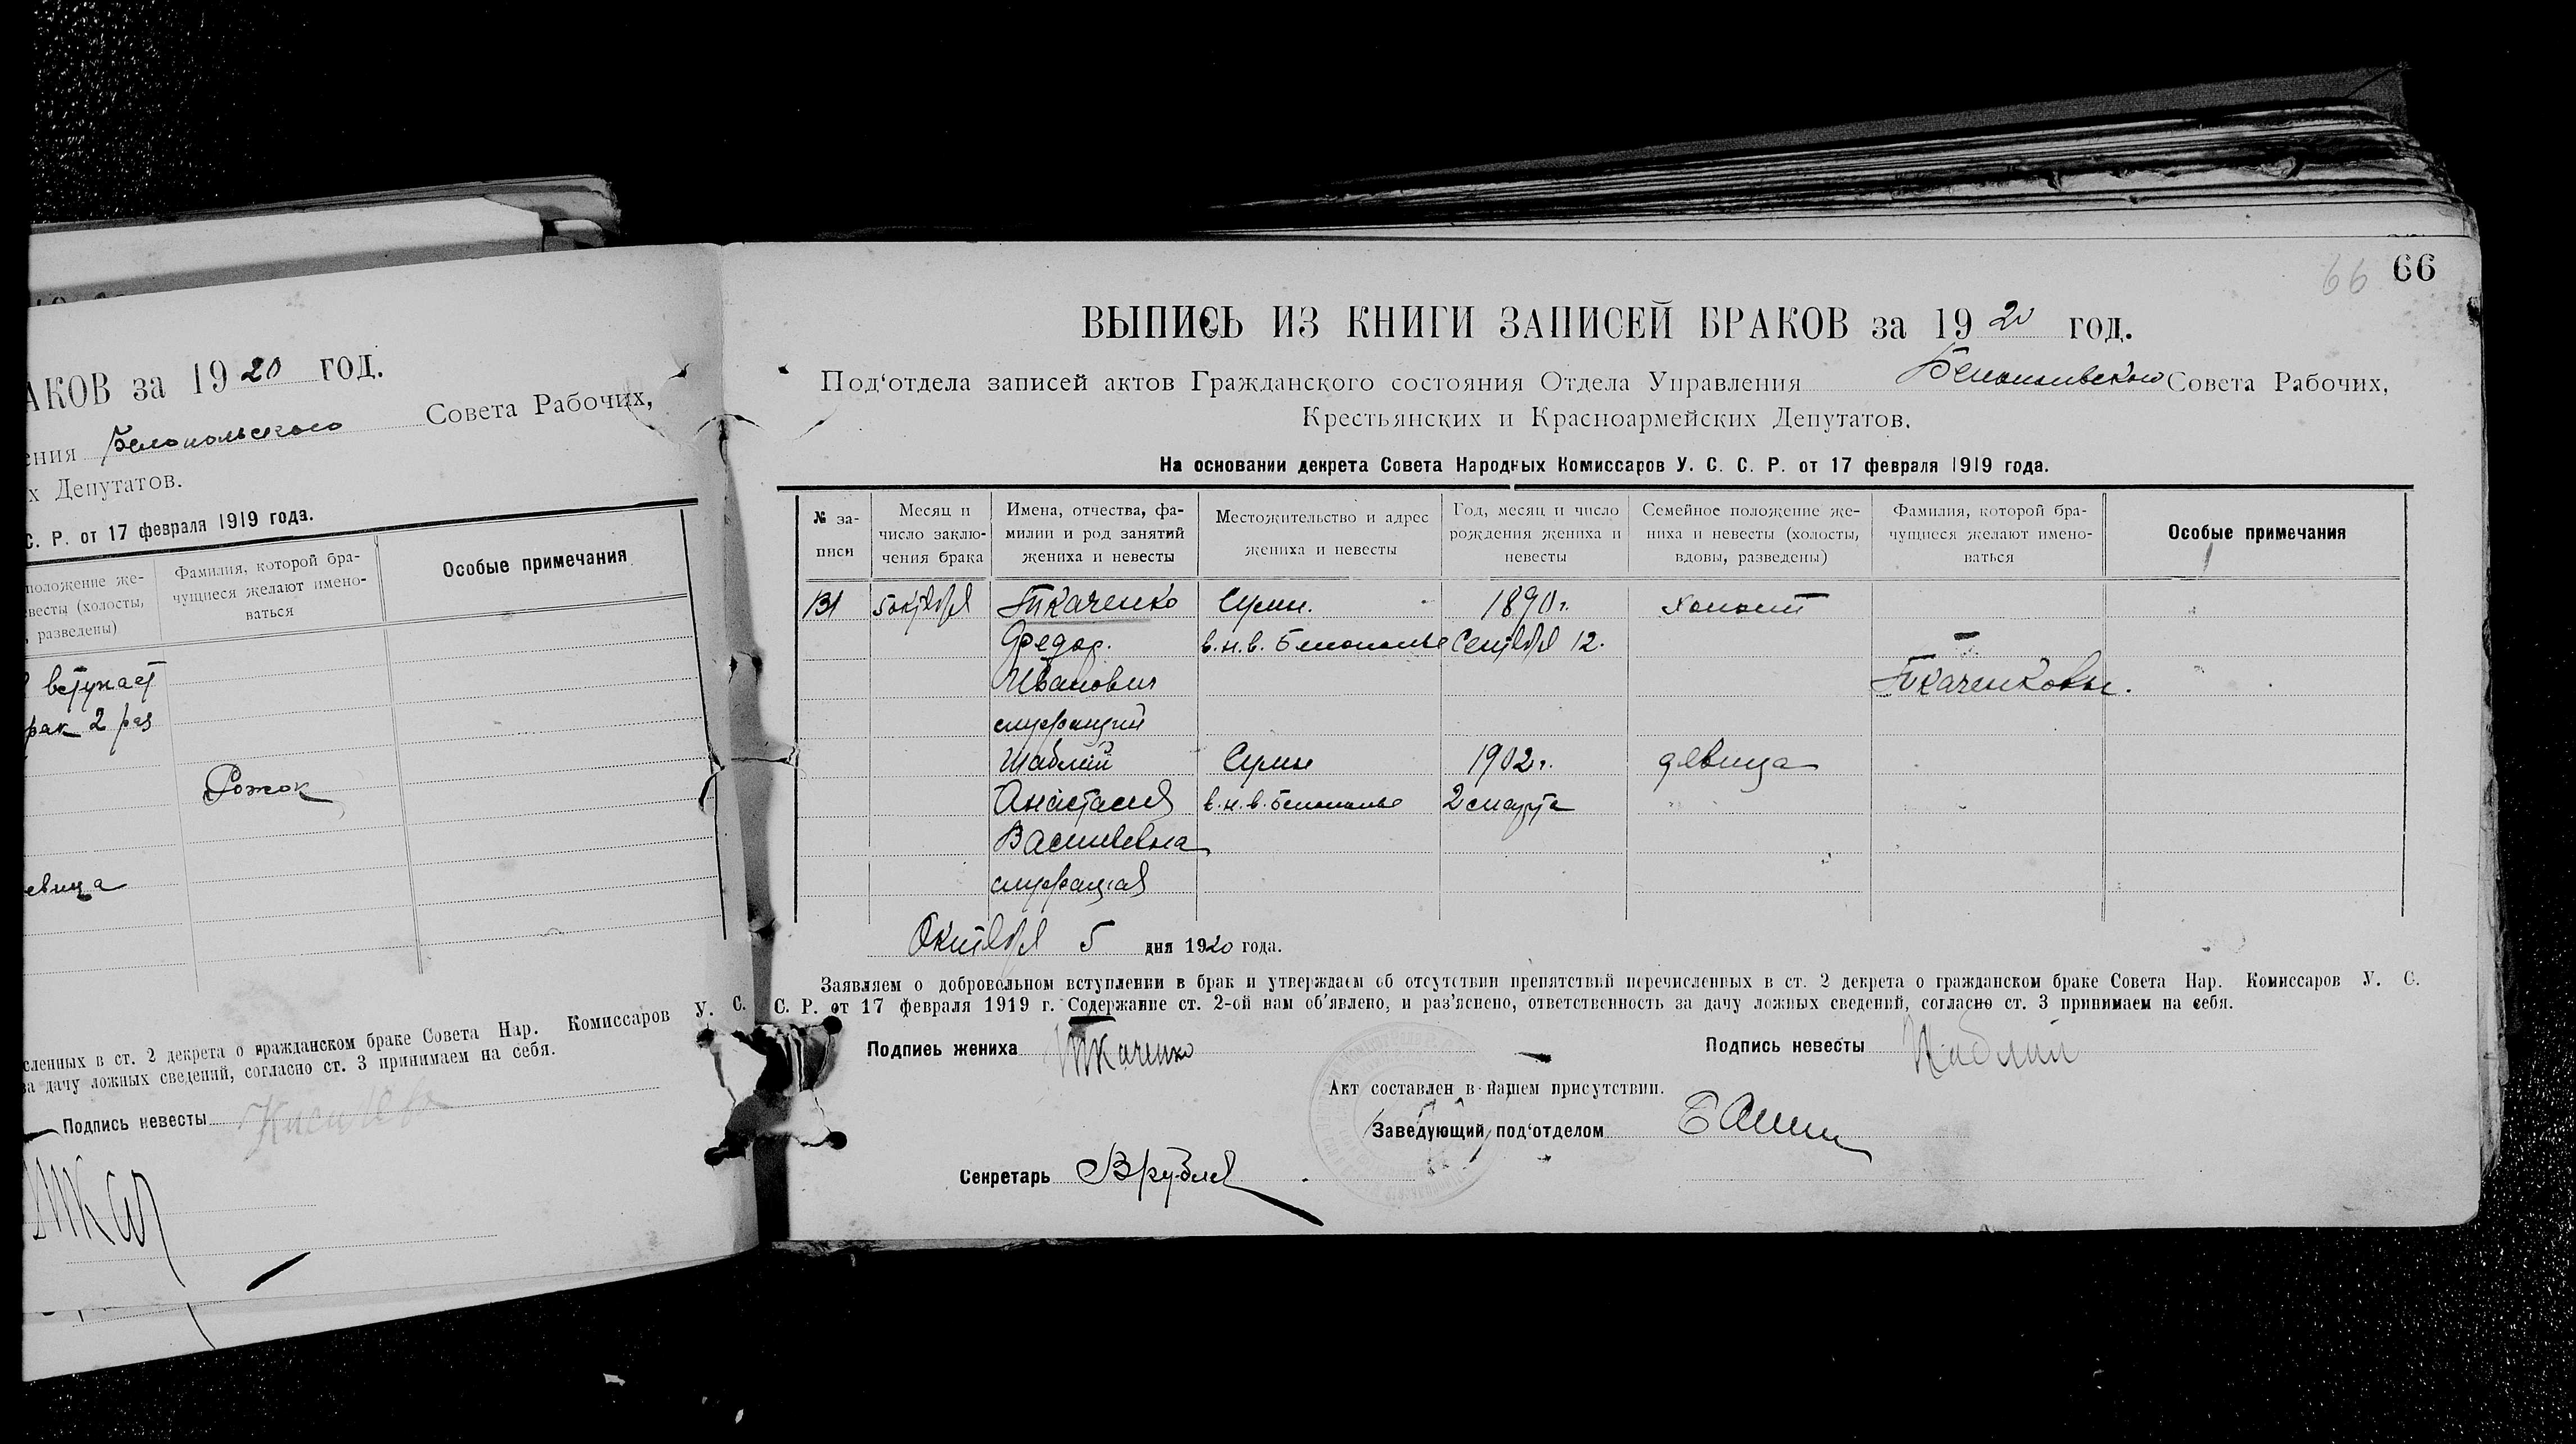 АКОВ за 1920 год.
Совета Рабочих,
ения Белопольского
х Депутатов.
С. Р. от 17 февраля 1919 года.
положение же-
евесты (холосты,
, разведены)
Фамилия, которой бра-
чущиеся желают имено-
ваться
Особые примечания
вступает
рак 2 раз
Рожок
евица
сленных в ст. 2 декрета о гражданском браке Совета Нар. Комиссаров У. С.
за дачу ложных сведений, согласно ст. 3 принимаем на себя.
Подпись невесты
66 66
ВЫПИСЬ ИЗ КНИГИ ЗАПИСЕЙ БРАКОВ за 1920 год.
Под‘отдела записей актов Гражданского состояния Отдела Управления Белопольского Совета Рабочих,
Крестьянских и Красноармейских Депутатов.
На основании декрета Совета Народных Комиссаров У. С. С. Р. от 17 февраля 1919 года.
№ за-
писи
Месяц и
число заклю-
чения брака
Имена, отчества, фа-
милии и род занятий
жениха и невесты
Местожительство и адрес
жениха и невесты
Год, месяц и число
рождения жениха и
невесты
Семейное положение же-
ниха и невесты (холосты,
вдовы, разведены)
Фамилия, которой бра-
чущиеся желают имено-
ваться
Особые примечания
131 5 октября Ткаченко Сумы. 1890 г. холост
Федор. в.н.в. Белополье Сентября 12.
Иванович Ткаченковы.
служащий
Шаблий Сумы 1902 г. девица
Анастасия в.н.в. Белополье 2 марта
Васильевна
служащая
Октября 5 дня 1920 года.
Заявляем о добровольном вступлении в брак и утверждаем об отсутствии препятствий перечисленных в ст. 2 декрета о гражданском браке Совета Нар. Комиссаров У. С.
С. Р. от 17 февраля 1919 г. Содержание ст. 2-ой нам об'явлено, и раз'яснено, ответственность за дачу ложных сведений, согласно ст. 3 принимаем на себя.
Подпись жениха Ткаченко Подпись невесты Шаблий
Акт составлен в нашем присутствии.
Заведующий под‘отделом
Секретарь